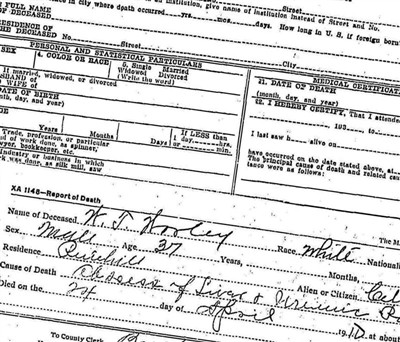 institution, give name of institution instead of Street and No.
city where death occurred yrs. mos. days. How long in U. S. if foreign born
FULL NAME
OF DECEASED
RESIDENCE
OF THE DECEASED No. Street
Street
City
PERSONAL AND STATISTICAL PARTICULARS
SEX 4. COLOR OR RACE 5. Single Married
Widowed Divorced
(Write the word)
If married, widowed, or divorced
HUSBAND of
WIFE of
DATE OF BIRTH
(month, day, and year)
Years Months Days If LESS than
1 day hrs.
or min.
Trade, profession, or particular
kind of work done, as spinner,
sawyer, bookkeeper, etc.
Industry or business in which
work was done, as silk mill, saw
MEDICAL CERTIFICAT
21. DATE OF DEATH
(month, day, and year)
22. I HEREBY CERTIFY, That I attended
193 to
I last saw h alive on
have occurred on the date stated above, at
The principal cause of death and related cau
tance were as follows:
XA 1148—Report of Death
Name of Deceased
Sex Age 37 Years, Race White Nationali
Residence Months,
Cause of Death of Liver & Alien or Citizen Cal
Died on the 24 day of April 19 at about
To County Clerk